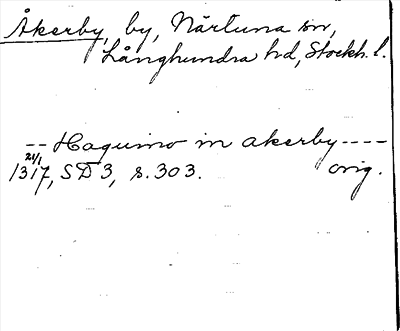 Åkerby, by, Närtuna sn,
Långhundra hd, Stockh. l.
-- Haquino in akerby ----
21/1 1317, SD 3, s. 303. orig.